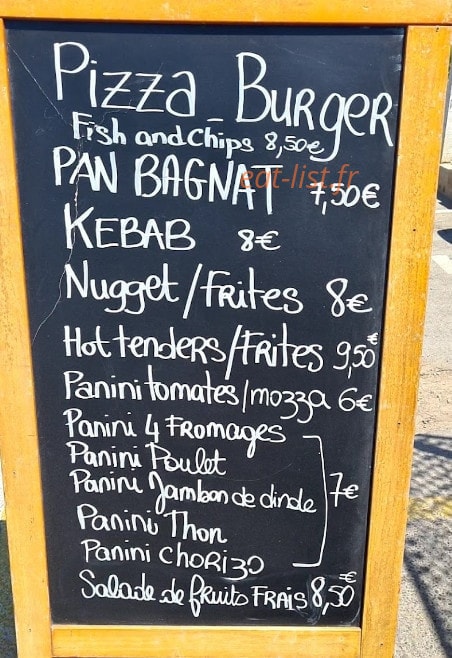 Pizza - Burger
Fish and chips 8,50€
PAN BAGNAT 7,50€
eat-list.fr
KEBAB 8€
Nugget/Frites 8€
Hot tenders/Frites 9,50€
Panini tomates/mozza 6€
Panini 4 FROMAGES
Panini Poulet
Panini Jambon de dinde 7€
Panini Thon
Panini CHORIZO
Salade de fruits FRAIS 8,50€